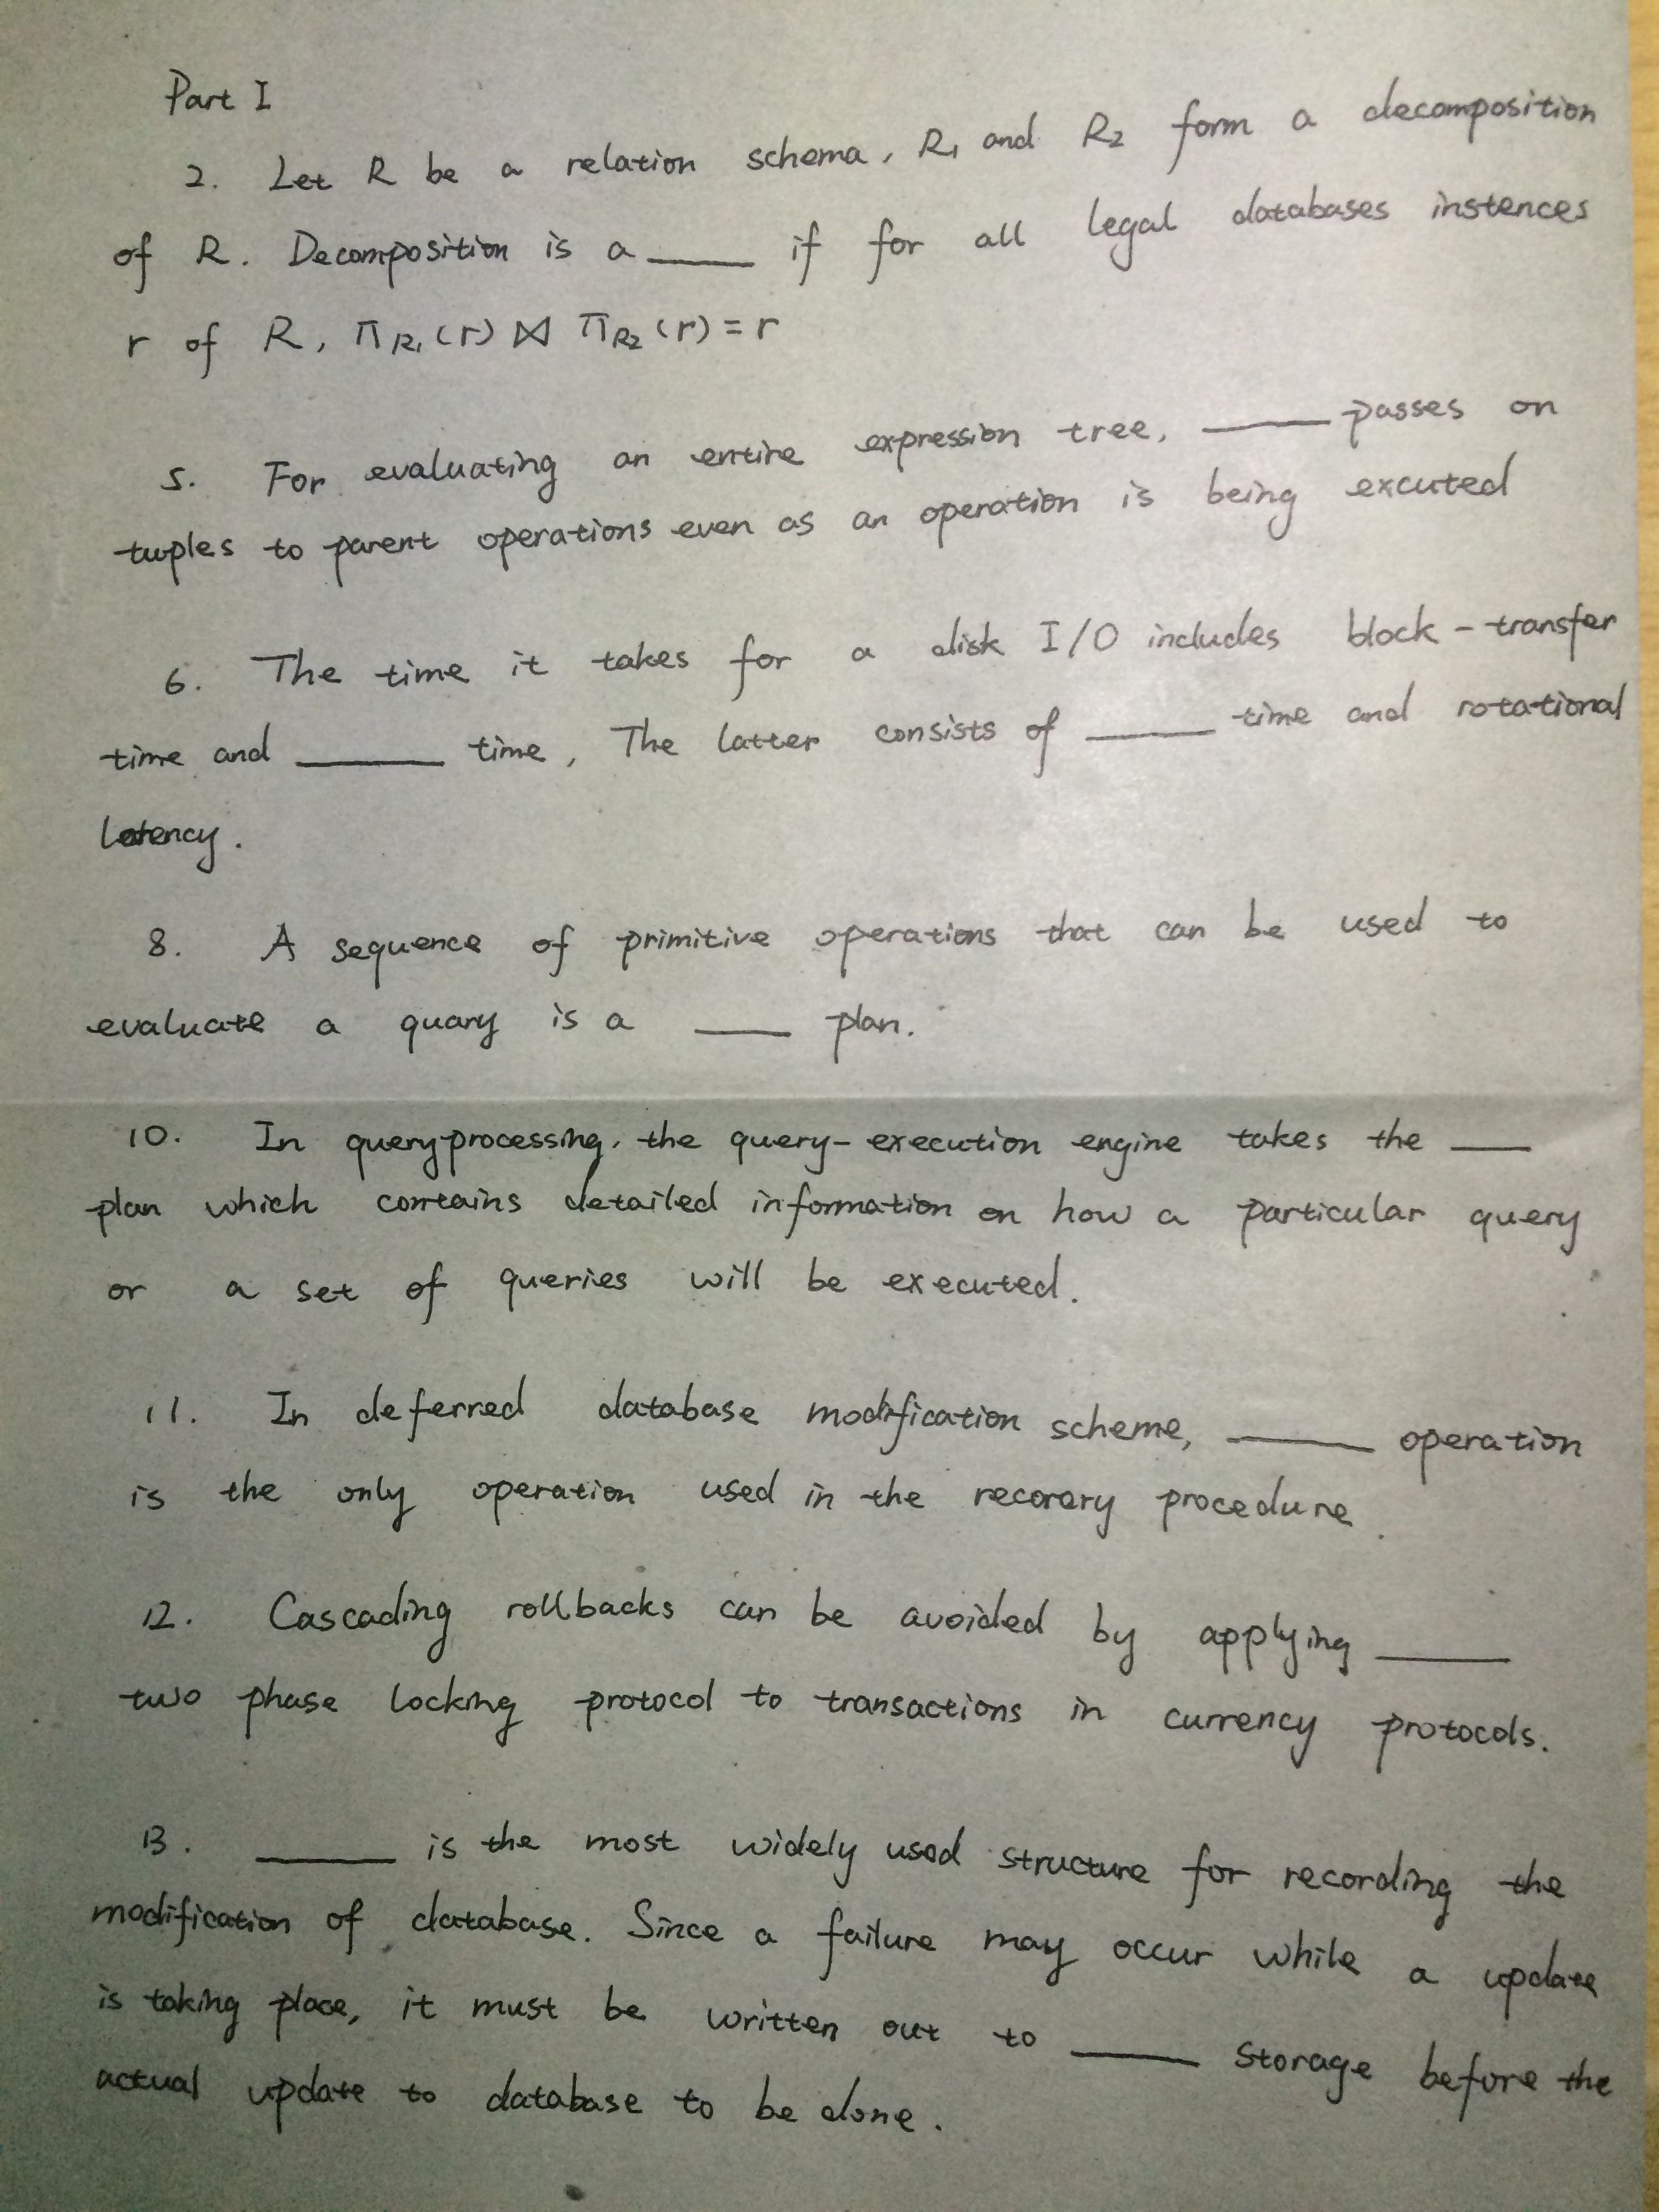 Part I
2. Let R be a relation schema, R1 and R2 form a decomposition
of R. Decomposition is a ____ if for all legal databases instences
r of R, ΠR1(r) ⋈ ΠR2(r) = r
5. For evaluating an entire expression tree, ____ passes on
tuples to parent operations even as an operation is being excuted
6. The time it takes for a disk I/O includes block-transfer
time and ____ time, The latter consists of ____ time and rotational
latency.
8. A sequence of primitive operations that can be used to
evaluate a quary is a ____ plan.
10. In query processing, the query-execution engine takes the ____
plan which contains detailed information on how a particular query
or a set of queries will be executed.
11. In deferred database modification scheme, ____ operation
is the only operation used in the recorary procedure.
12. Cascading rollbacks can be avoided by applying ____
two phase locking protocol to transactions in currency protocols.
13. ____ is the most widely used structure for recording the
modification of database. Since a failure may occur while a update
is taking place, it must be written out to ____ storage before the
actual update to database to be done.